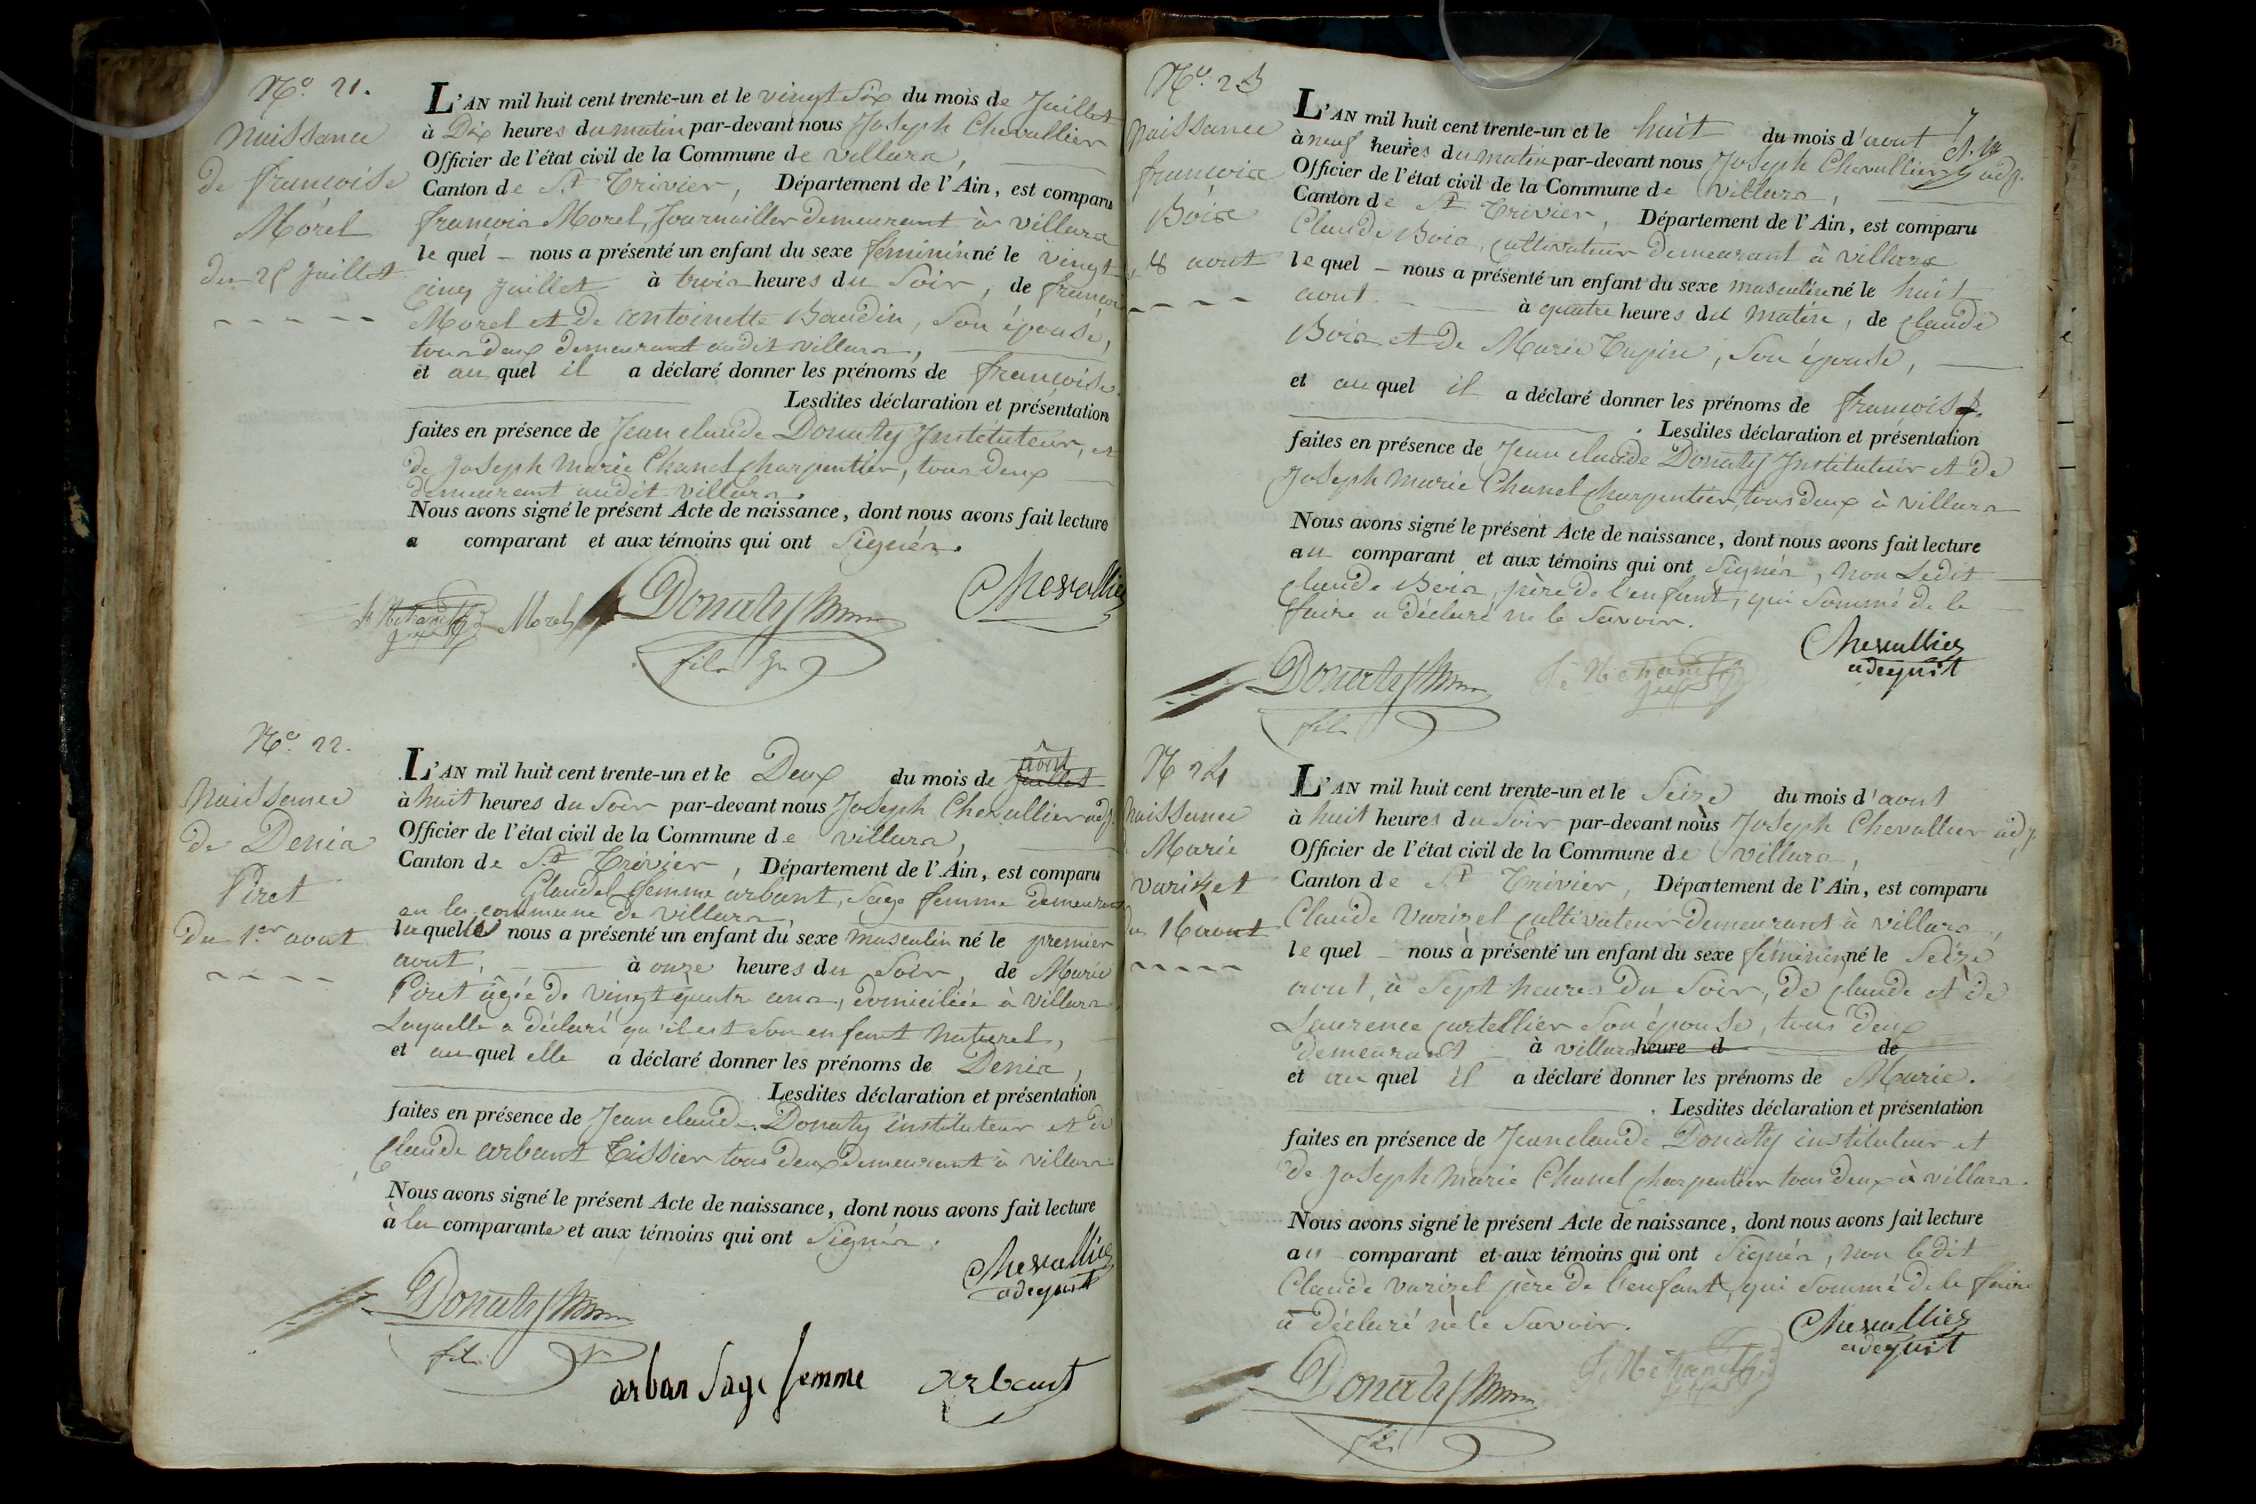 N.º 21.
Naissance
de françoise
Morel
du 25 Juillet
L'AN mil huit cent trente-un et le vingt Six du mois de Juillet
à Dix heures du matin par-devant nous Joseph Chevallier
Officier de l'état civil de la Commune de villars,
Canton de St Trivier, Département de l'Ain, est comparu
françois Morel, Journaillier demeurant à villars
le quel nous a présenté un enfant du sexe féminin né le vingt
cinq Juillet à trois heures du Soir, de françois
Morel et de antoinette Baudin, Son épouse,
tous deux demeurant audit villars,
et au quel il a déclaré donner les prénoms de françoise.
Lesdites déclaration et présentation
faites en présence de Jean claude Donaty Instituteur, et
de Joseph Marie Chanel charpentier, tous deux
demeurant audit villars.
Nous avons signé le présent Acte de naissance, dont nous avons fait lecture
a comparant et aux témoins qui ont Signés.
Morel Donaty Chevallier
fils
N.º 22.
Naissance
de Denis
Piret
Du 1.er aout
L'AN mil huit cent trente-un et le Deux du mois de Juillet aout
à huit heures du Soir par-devant nous Joseph Chevallier adj.
Officier de l'état civil de la Commune de villars,
Canton de St Trivier, Département de l'Ain, est comparu
Glaudel femme arbant, Sage femme demeurant
en la commune de villars,
laquelle nous a présenté un enfant du sexe masculin né le premier
aout, à onze heures du Soir, de Marie
Piret âgée de vingt quatre ans, domiciliée à villars
Laquelle a déclaré qu'il est Son enfant naturel,
et au quel elle a déclaré donner les prénoms de Denis,
Lesdites déclaration et présentation
faites en présence de Jean claude Donaty instituteur et de
Claude arbant Tissier tous deux demeurant à villars
Nous avons signé le présent Acte de naissance, dont nous avons fait lecture
à la comparante et aux témoins qui ont Signés.
Chevallier
adejoint
Donaty
fils
arban Sage femme arbant
N.º 23
Naissance
françois
Bois
8 aout
L'AN mil huit cent trente-un et le huit du mois d'aout
à neuf heures du matin par-devant nous Joseph Chevallier adj.
Officier de l'état civil de la Commune de villars,
Canton de St Trivier, Département de l'Ain, est comparu
Claude Bois, cultivateur demeurant à villars
le quel nous a présenté un enfant du sexe masculin né le huit
aout à quatre heures du Matin, de claude
Bois et de Marie Tupin, Son épouse,
et au quel il a déclaré donner les prénoms de françois.
Lesdites déclaration et présentation
faites en présence de Jean claude Donaty Instituteur et de
Joseph Marie Chanel charpentier, tous deux à villars
Nous avons signé le présent Acte de naissance, dont nous avons fait lecture
au comparant et aux témoins qui ont Signés, non Ledit
claude Bois, père de l'enfant, qui Sommé de le
faire a déclaré ne le Savoir.
Chevallier
adejoint
Donaty
fils
N 24
Naissance
Marie
varizet
du 16 aout
L'AN mil huit cent trente-un et le Seize du mois d'aout
à huit heures du Soir par-devant nous Joseph Chevallier adj.
Officier de l'état civil de la Commune de villars,
Canton de St Trivier, Département de l'Ain, est comparu
Claude varizet cultivateur demeurant à villars,
le quel nous a présenté un enfant du sexe féminin né le Seize
aout, à Sept heures du Soir, de claude et de
Laurence cartellier Son épouse, tous deux
demeurant à villars heure d de
et au quel il a déclaré donner les prénoms de Marie.
Lesdites déclaration et présentation
faites en présence de Jean claude Donaty instituteur et
de Joseph Marie Chanel charpentier tous deux à villars.
Nous avons signé le présent Acte de naissance, dont nous avons fait lecture
au comparant et aux témoins qui ont Signés, non ledit
Claude varizet père de l'enfant, qui Sommé de le faire
à déclaré ne le Savoir.
Chevallier
adejoint
Donaty
fils